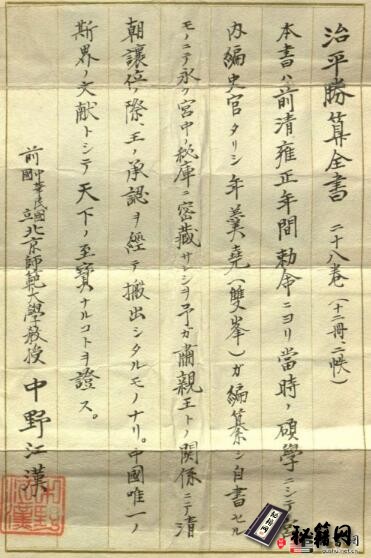 治平勝算全書 二十八巻（十二冊、二帙）
本書ハ前清雍正年間勅命ニヨリ當時ノ碩學ニシテ
内編史官タリシ年羹堯（雙峯）ガ編纂シ自書セル
モノニテ永ク宮中ノ秘庫ニ密藏サレシヲ予ガ肅親王トノ関係ニテ清
朝讓位ノ際、王ノ承認ヲ經テ搬出シタルモノナリ。中國唯一ノ
斯界ノ文献トシテ天下ノ至寶ナルコトヲ證ス。
前中華民國國立北京師範大學教授 中野江漢
秘籍网